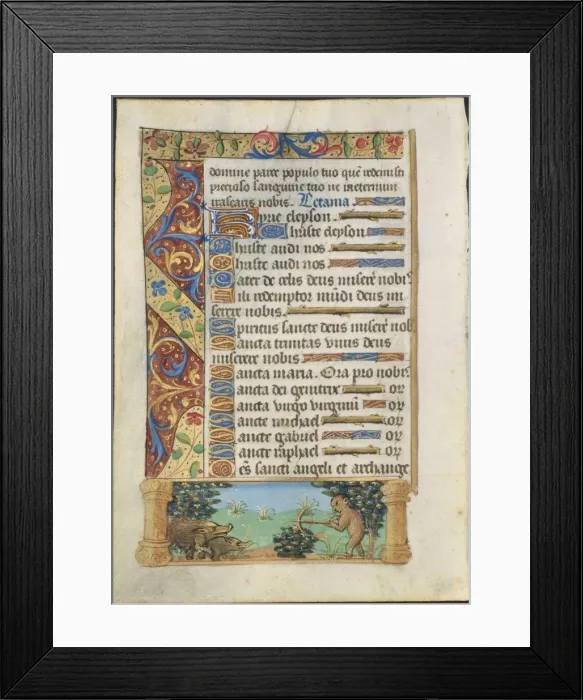 domine parce populo tuo quē redemisti
precioso sanguine tuo ne ineternum
irascaris nobis. Letania.
Kyrie eleyson.
Christe eleyson
Christe audi nos
Christe audi nos
Pater de celis deus miserē nobis
Fili redemptor mūdi deus mi
serere nobis.
Spiritus sancte deus miserē nob
Sancta trinitas vnus deus
miserere nobis.
Sancta maria. Ora pro nobis.
Sancta dei genitrix or
Sancta virgo virginū or
Sancte michael or
Sancte gabriel or
Sancte raphael or
Oēs sancti angeli et archange